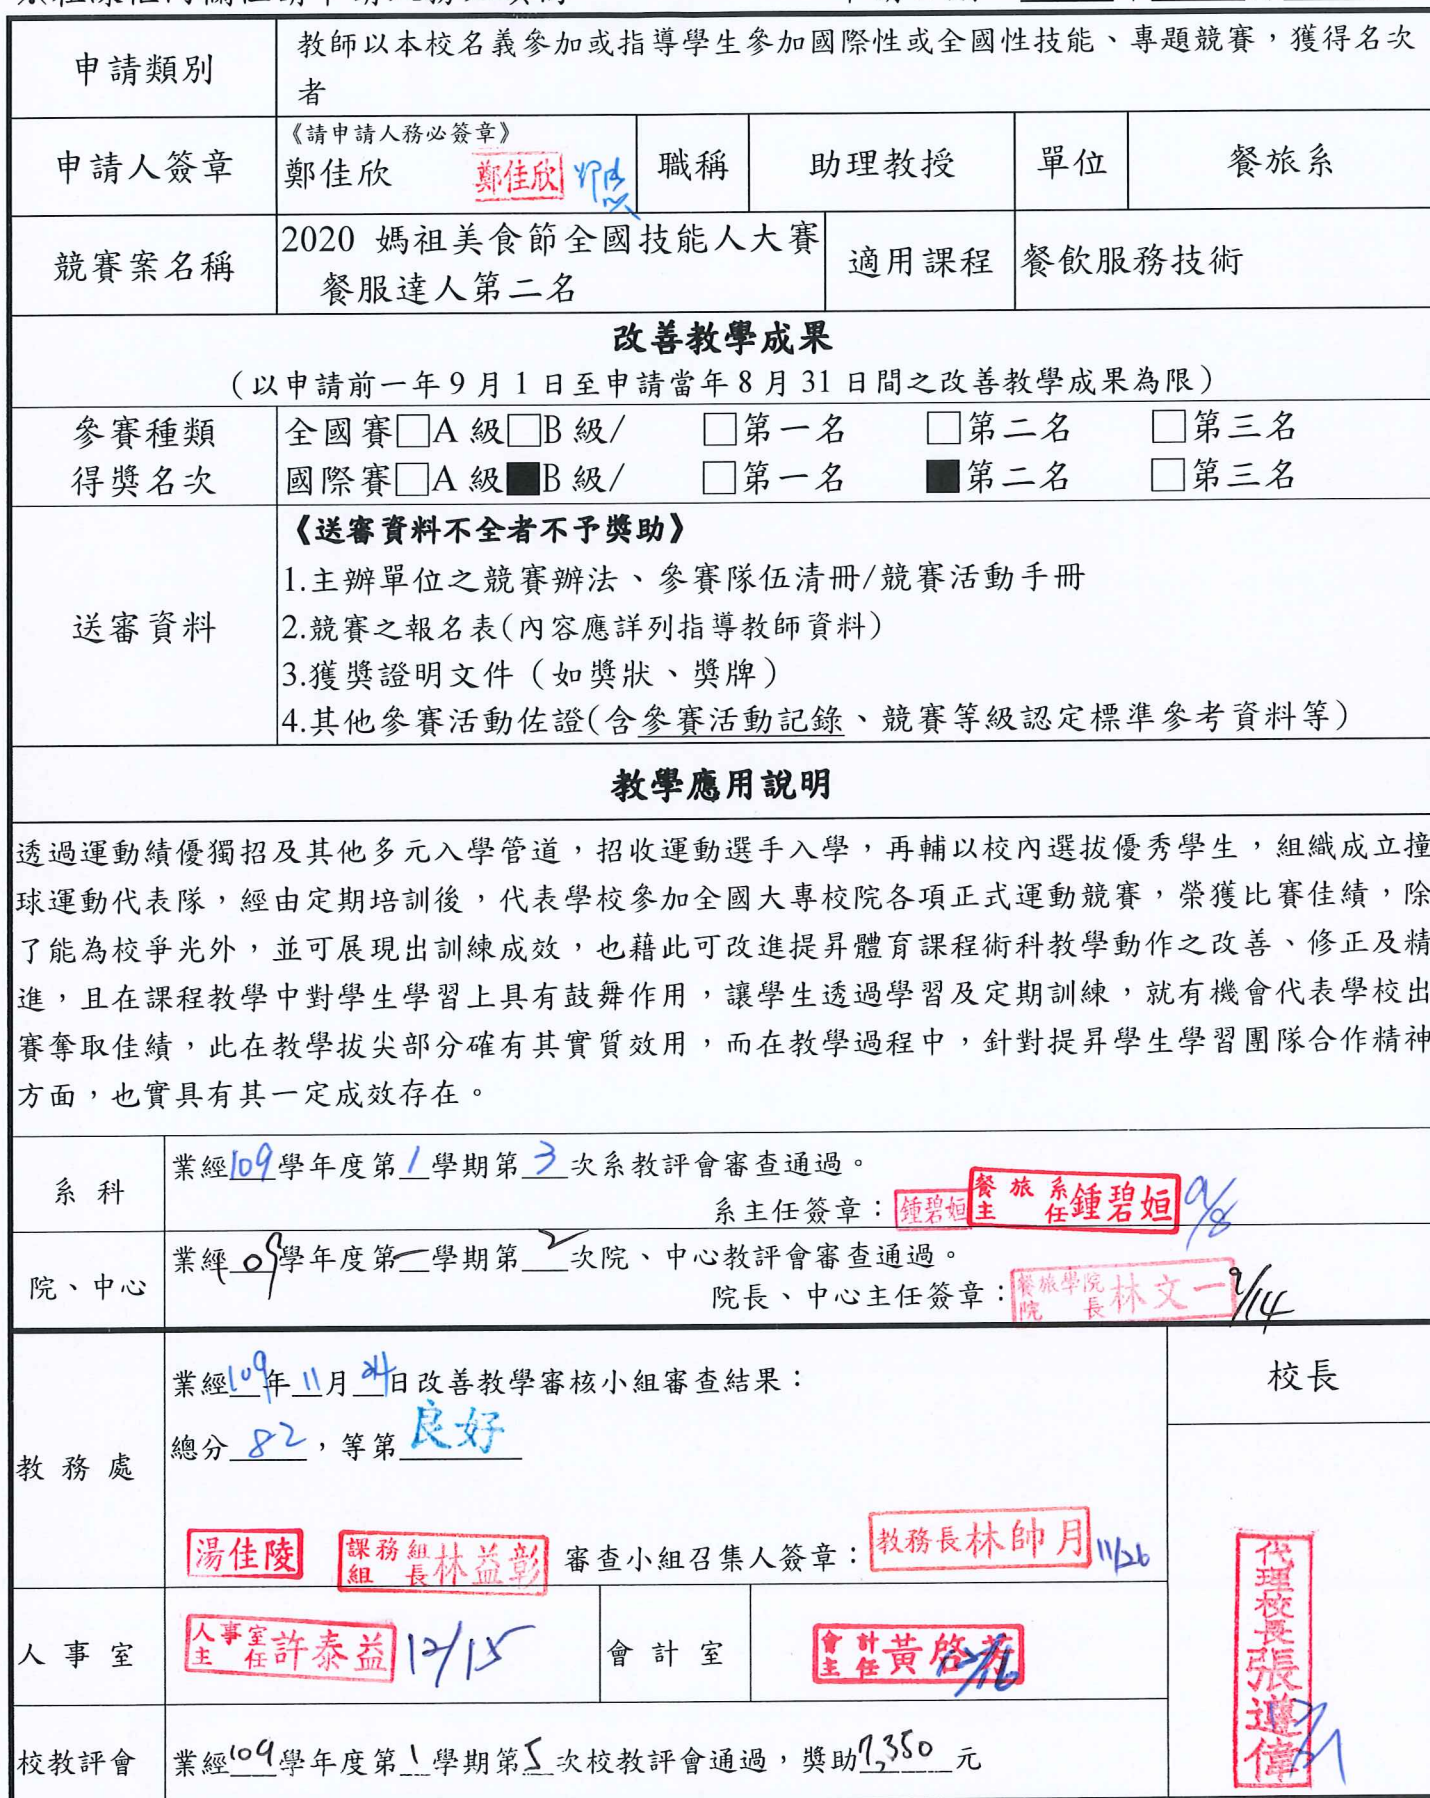 申請類別
教師以本校名義參加或指導學生參加國際性或全國性技能、專題競賽,獲得名次
者
申請人簽章
《請申請人務必簽章》
鄭佳欣 鄭佳欣
職稱 助理教授 單位 餐旅系
競賽案名稱
2020 媽祖美食節全國技能人大賽
餐服達人第二名
適用課程 餐飲服務技術
改善教學成果
(以申請前一年 9 月 1 日至申請當年 8 月 31 日間之改善教學成果為限)
參賽種類 全國賽□A 級□B 級/ □第一名 □第二名 □第三名
得獎名次 國際賽□A 級■B 級/ □第一名 ■第二名 □第三名
送審資料
《送審資料不全者不予獎助》
1.主辦單位之競賽辦法、參賽隊伍清冊/競賽活動手冊
2.競賽之報名表(內容應詳列指導教師資料)
3.獲獎證明文件(如獎狀、獎牌)
4.其他參賽活動佐證(含參賽活動記錄、競賽等級認定標準參考資料等)
教學應用說明
透過運動績優獨招及其他多元入學管道,招收運動選手入學,再輔以校內選拔優秀學生,組織成立撞
球運動代表隊,經由定期培訓後,代表學校參加全國大專校院各項正式運動競賽,榮獲比賽佳績,除
了能為校爭光外,並可展現出訓練成效,也藉此可改進提昇體育課程術科教學動作之改善、修正及精
進,且在課程教學中對學生學習上具有鼓舞作用,讓學生透過學習及定期訓練,就有機會代表學校出
賽奪取佳績,此在教學拔尖部分確有其實質效用,而在教學過程中,針對提昇學生學習團隊合作精神
方面,也實具有其一定成效存在。
系科
業經109學年度第1學期第3次系教評會審查通過。
系主任簽章: 鍾碧姮 餐旅系主任鍾碧姮 9/8
院、中心
業經109學年度第一學期第2次院、中心教評會審查通過。
院長、中心主任簽章: 餐旅學院院長林文一 9/14
教務處
業經109年11月24日改善教學審核小組審查結果:
總分82,等第良好
湯佳陵 課務組組長林益彰 審查小組召集人簽章: 教務長林帥月 11/26
校長
代理校長張遵偉
人事室 人事室主任許泰益 12/15
會計室 會計主任黃啓 12/16
校教評會 業經109學年度第1學期第5次校教評會通過,獎助7,350元